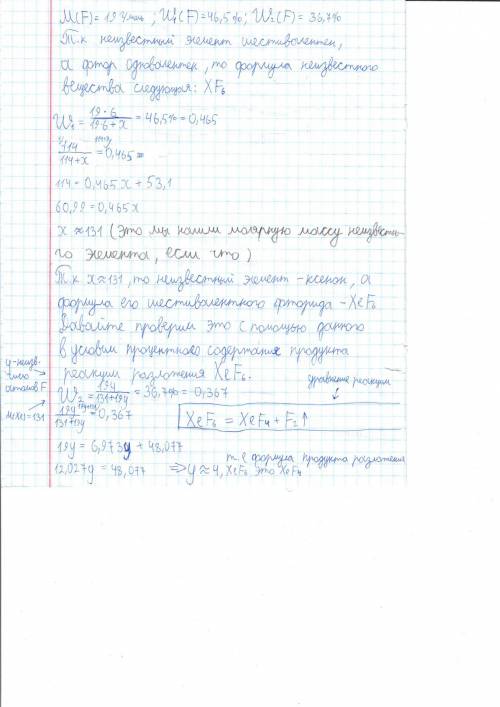 M(F) = 19 г/моль ; W₁(F)=46,5%; W₂(F) = 36,7%
Т.к неизвестный элемент шестивалентен,
а фтор одновалентен, то формула неизвестного
вещества следующая: XF₆
W₁ = 19·6 / 19·6+x = 46,5% = 0,465
114 / 114+x = 0,465
114 = 0,465x + 53,1
60,99 = 0,465x
x ≈ 131 (Это мы нашли молярную массу неизвестно-
го элемента, если что)
Т.к x≈131, то неизвестный элемент - ксенон, а
формула его шестивалентного фторида - XeF₆
Давайте проверим это с помощью данного
в условии процентного содержания продукта
реакции разложения XeF₆.
y-неизв. число атомов F
уравнение реакции
W₂ = 19y / 131+19y = 36,7% = 0,367
M(Xe)=131
19y / 131+19y = 0,367
XeF₆ = XeF₄ + F₂↑
19y = 6,973y + 48,077
т.е формула продукта разложения
12,027y = 48,077 ⇒ y ≈ 4, XeF₆ это XeF₄